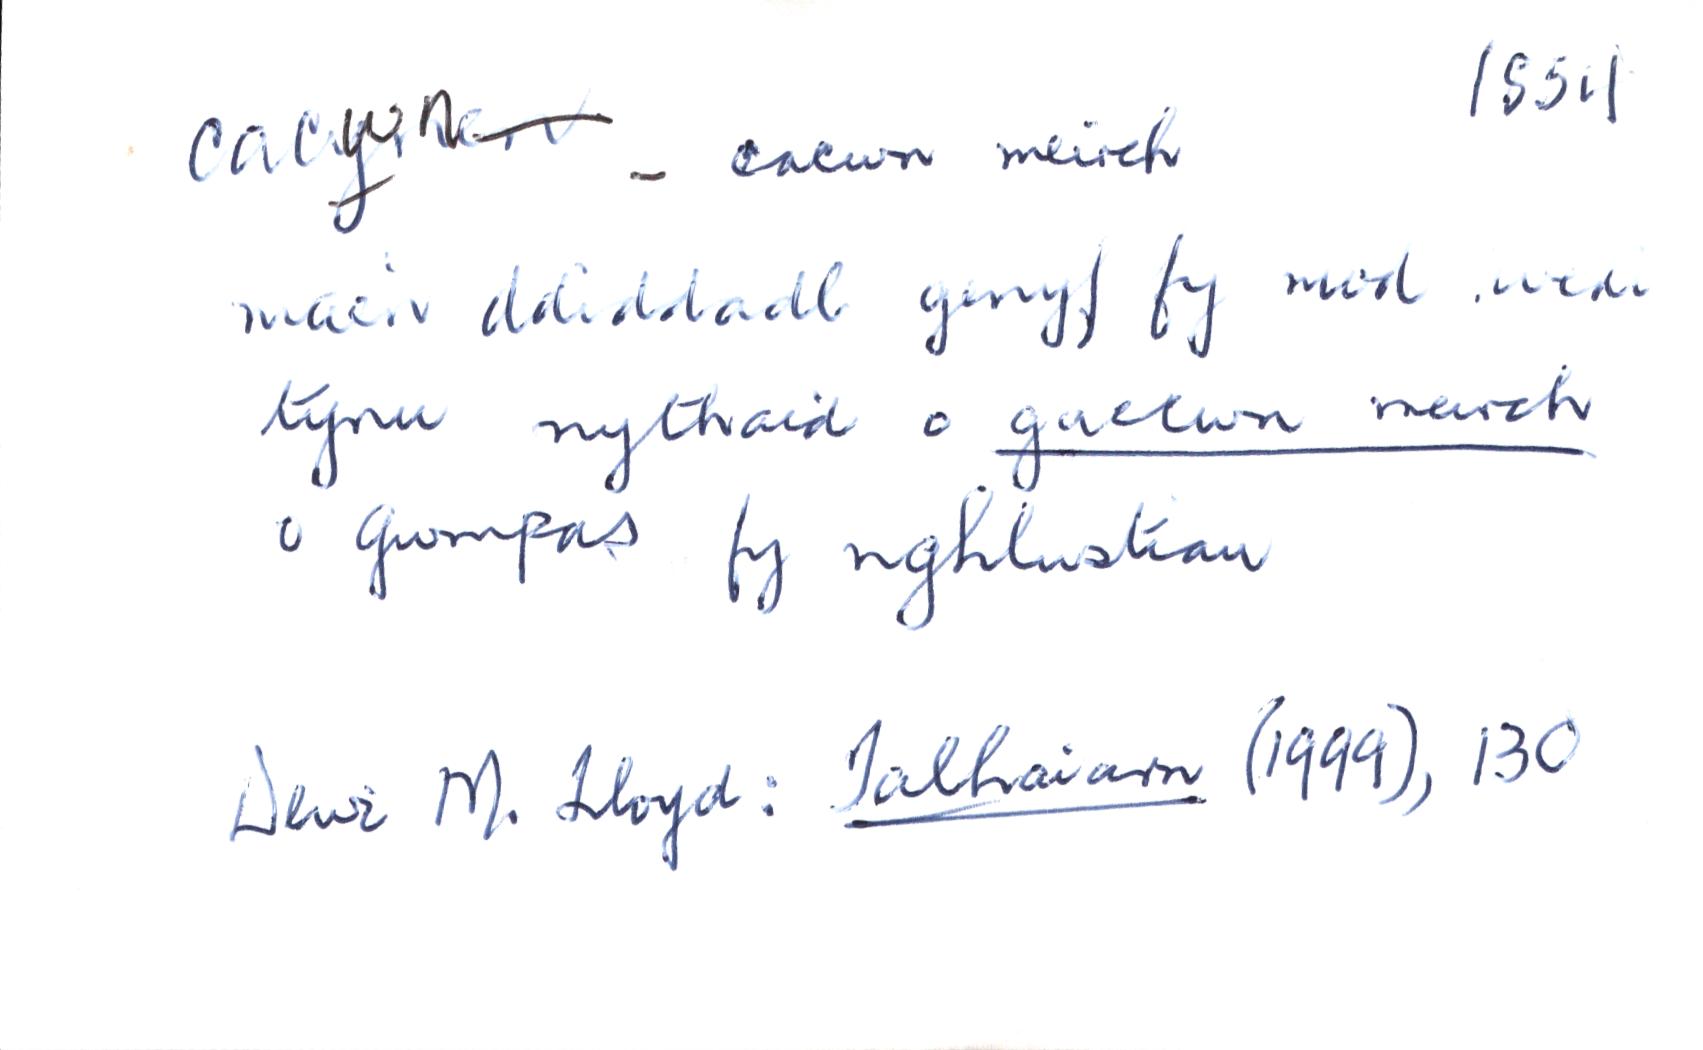 1851
cacwn - cacwn meirch
maen ddiddadl genyf fy mod wedi
tynu nythaid o gaccwn meirch
o gwmpas fy nghlustiau
Dewi M. Lloyd: Talhaiarn (1999), 130